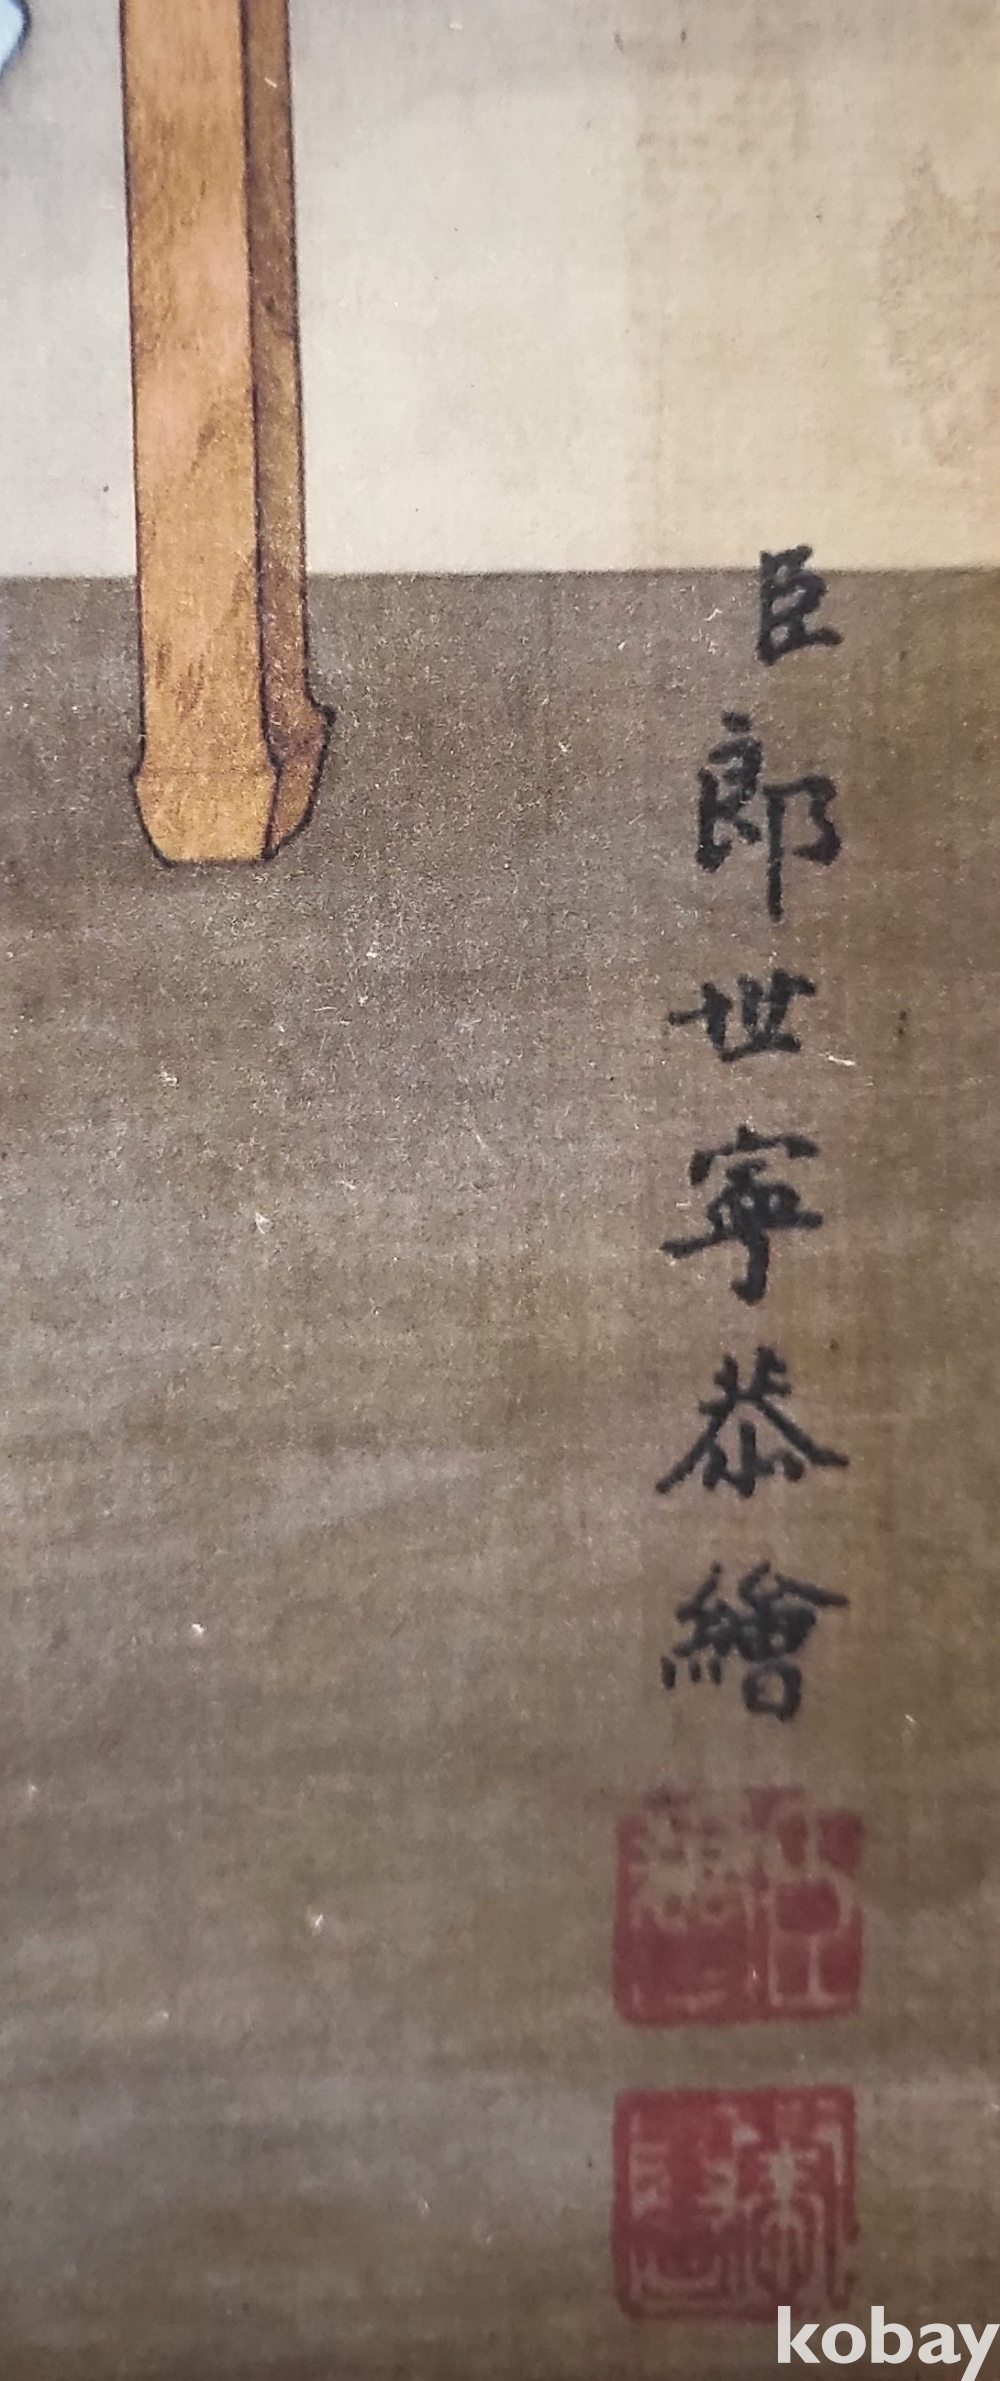 臣郎世寧恭繪
kobay